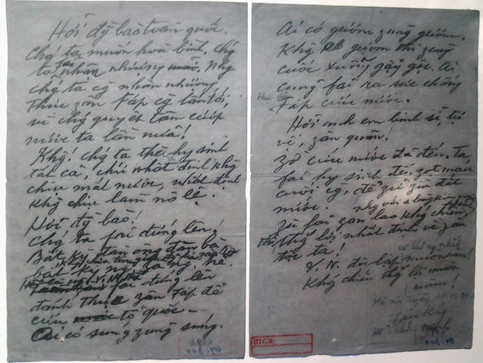 Hỡi đồng bào toàn quốc,
Chg ta muốn hoà bình, chg
ta fải nhân nhượng. Nhg
chg ta cg nhân nhượng
thực zân Fáp cg lấn tới,
vì chg quyết tâm cướp
nước ta lần nữa!
Khg. chg ta thà hy sinh
tất cả, chứ nhất định khg
chịu mất nước, nhất định
khg chịu làm nô lệ.
Hỡi đg bào!
Chg ta fải đứng lên!
Bất kỳ đàn ông đàn bà,
bất kỳ ng già ng trẻ,
fải đứng lên
đánh thực zân Fáp để
cứu tổ quốc.
Ai có súng zùng súng.
Ai có gươm zùng gươm.
Khg có gươm thì zùng
cuốc xuổng gậy gộc. Ai
cũng fải ra sức chống
Fáp cứu nước.
Hỡi anh em binh sĩ, tự
vệ, zân quân!
Zờ cứu nước đã đến, ta
fải hy sinh đến zọt máu
cuối cg, để zữ zìn đất
nước.
Zù fải zan lao kháng chiến,
thắng lợi nhất định về zân
tộc ta!
V. N. độc lập muôn năm!
Kháng chiến thg lợi muôn
năm!